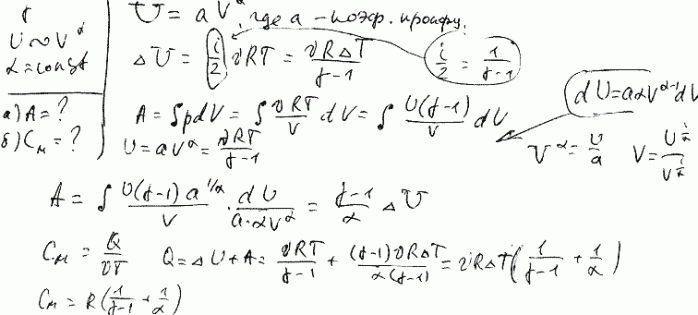 γ
U ~ V^α
α = const
а) A = ?
б) C_м = ?
U = aV^α, где a - коэф. пропорц.
ΔU = (i/2) νRT = νRΔT/(γ-1)
i/2 = 1/(γ-1)
A = ∫pdV = ∫ νRT/V dV = ∫ U(γ-1)/V dV
dU = aαV^(α-1)dV
U = aV^α = νRT/(γ-1)
V^α = U/a
V = U^(1/α)/U^(1/α)
A = ∫ U(γ-1)a^(1/α)/V · dU/(a·αV^α) = (γ-1)/α ΔU
C_м = Q/νT
Q = ΔU + A = νRT/(γ-1) + (γ-1)νRΔT/(α(γ-1)) = νRΔT(1/(γ-1) + 1/α)
C_м = R(1/(γ-1) + 1/α)